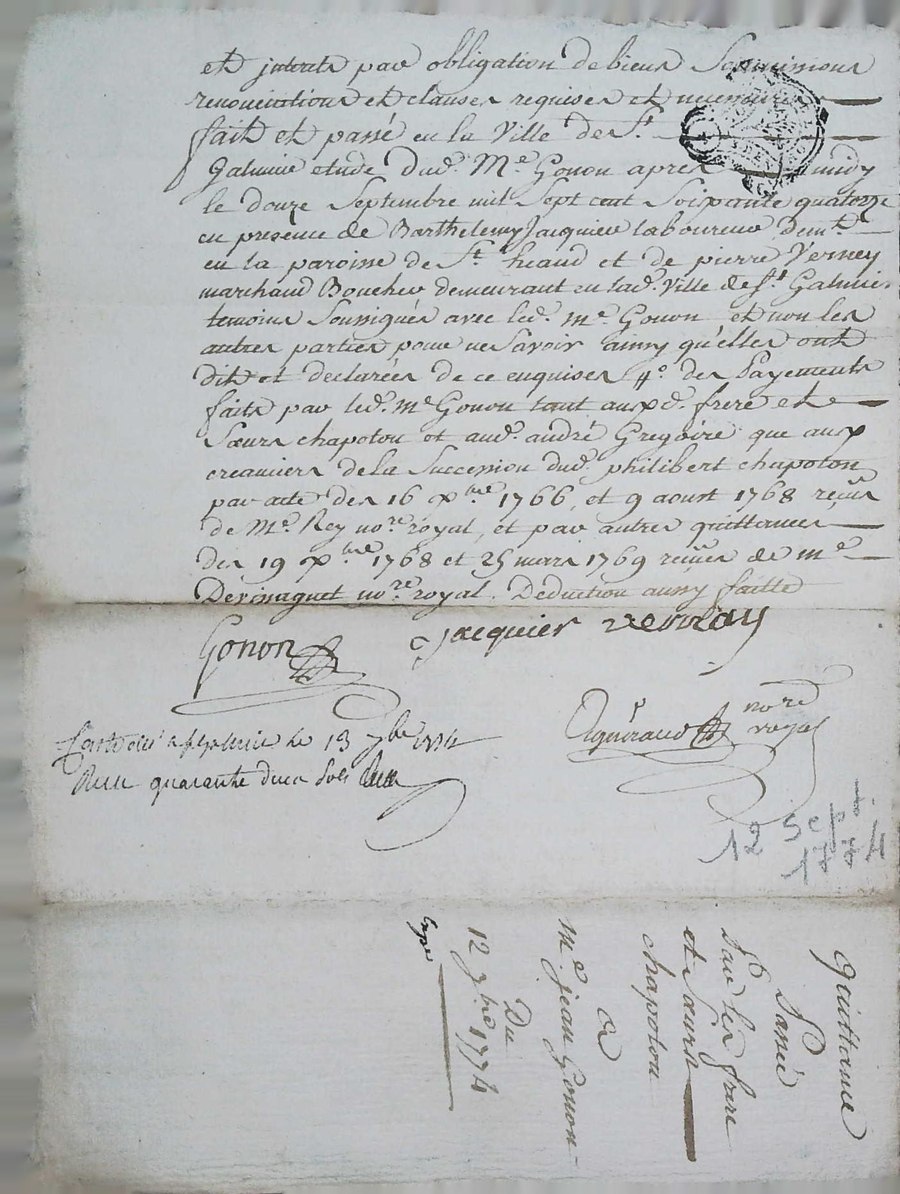 et interets par obligation de biens Soumimons
renonciations et clauses requises et necessaires
fait et passé en la Ville de St
Galmier etude dud. Me Gonon apres midy
le douze Septembre mil Sept cent Soixante quatorze
en presence de Barthelemy Jacquier laboureur demt
en la paroisse de St heand et de pierre Verney
marchand Boucher demeurant en lad. Ville de St Galmier
temoins Soussignés avec led. Me Gonon et non les
autres parties pour ne Savoir ainsy qu'elles ont
dit et declarées de ce enquises #o des Payements
faits par led. Me Gonon tant auxd. frere et
Sœurs chapoton et aud. andré Gregoire que aux
creanciers de la Succession dud. philibert chapoton
par acte des 16 xbre 1766, et 9 aoust 1768 reçus
de Me Rey nore royal, et par autres quittances
des 19 xbre 1768 et 25 mars 1769 reçues de me
Devinaguet nore royal. Deduction aussy faitte
Gonon Jacquier vernay
nore
royal
a St Galmier le 13 7bre 1774
Reçu quarante deux Sols
12 Sept.
1774
Quittance
Passée
Par les frere
et Sœurs
chapoton
a
Me jean Gonon
Du
12 7bre 1774
Expe